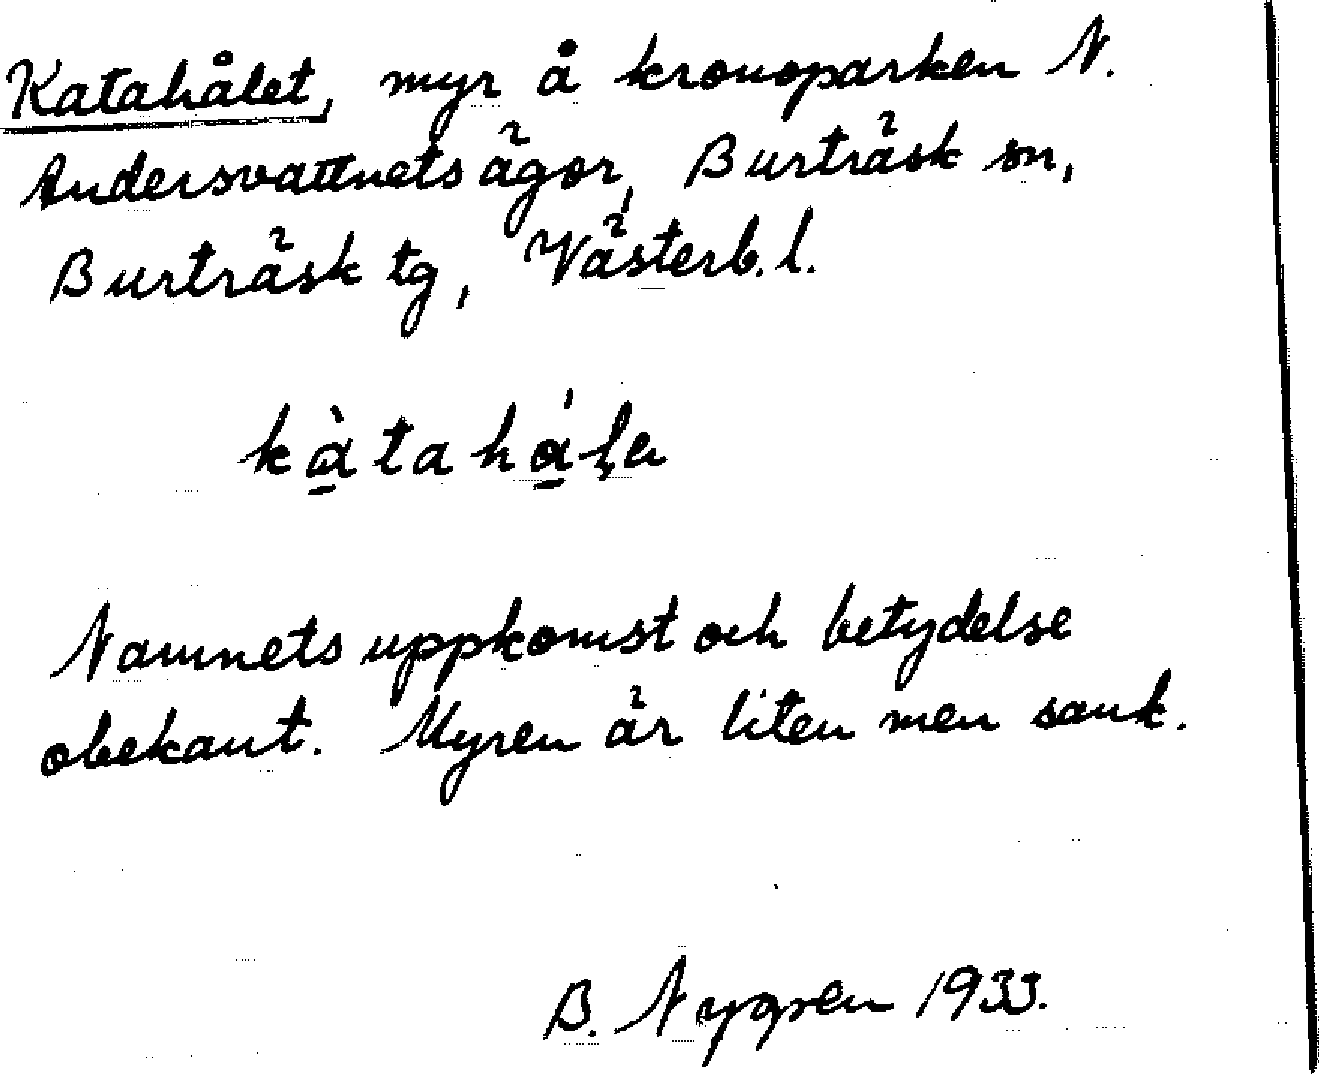 Katahålet, myr å kronoparken N.
Andersvattnets ägor, Burträsk sn,
Burträsk tg, Västerb. l.
kà̱tahá̱ḷa
Namnets uppkomst och betydelse
obekant. Myren är liten men sank.
B. Nygren 1933.